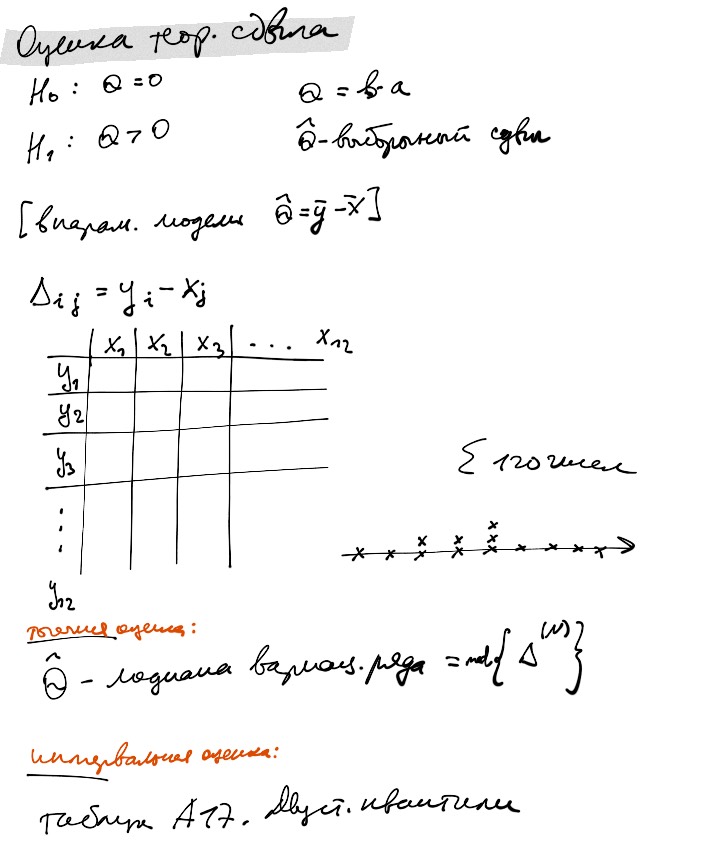 Оценка теор. сдвига
H₀: Θ = 0    Θ = b - a
H₁: Θ > 0    Θ̂ - выборочный сдвиг
[в парам. модели Θ̂ = ȳ - x̄]
Δij = yi - xj
x₁ x₂ x₃ ... x₁₂
y₁
y₂
y₃
⋮
y₁₂
Σ 120 чисел
точечная оценка:
Θ̂ - медиана вариац. ряда = med{Δ⁽ᴺ⁾}
интервальная оценка:
таблица A17. Двуст. квантили